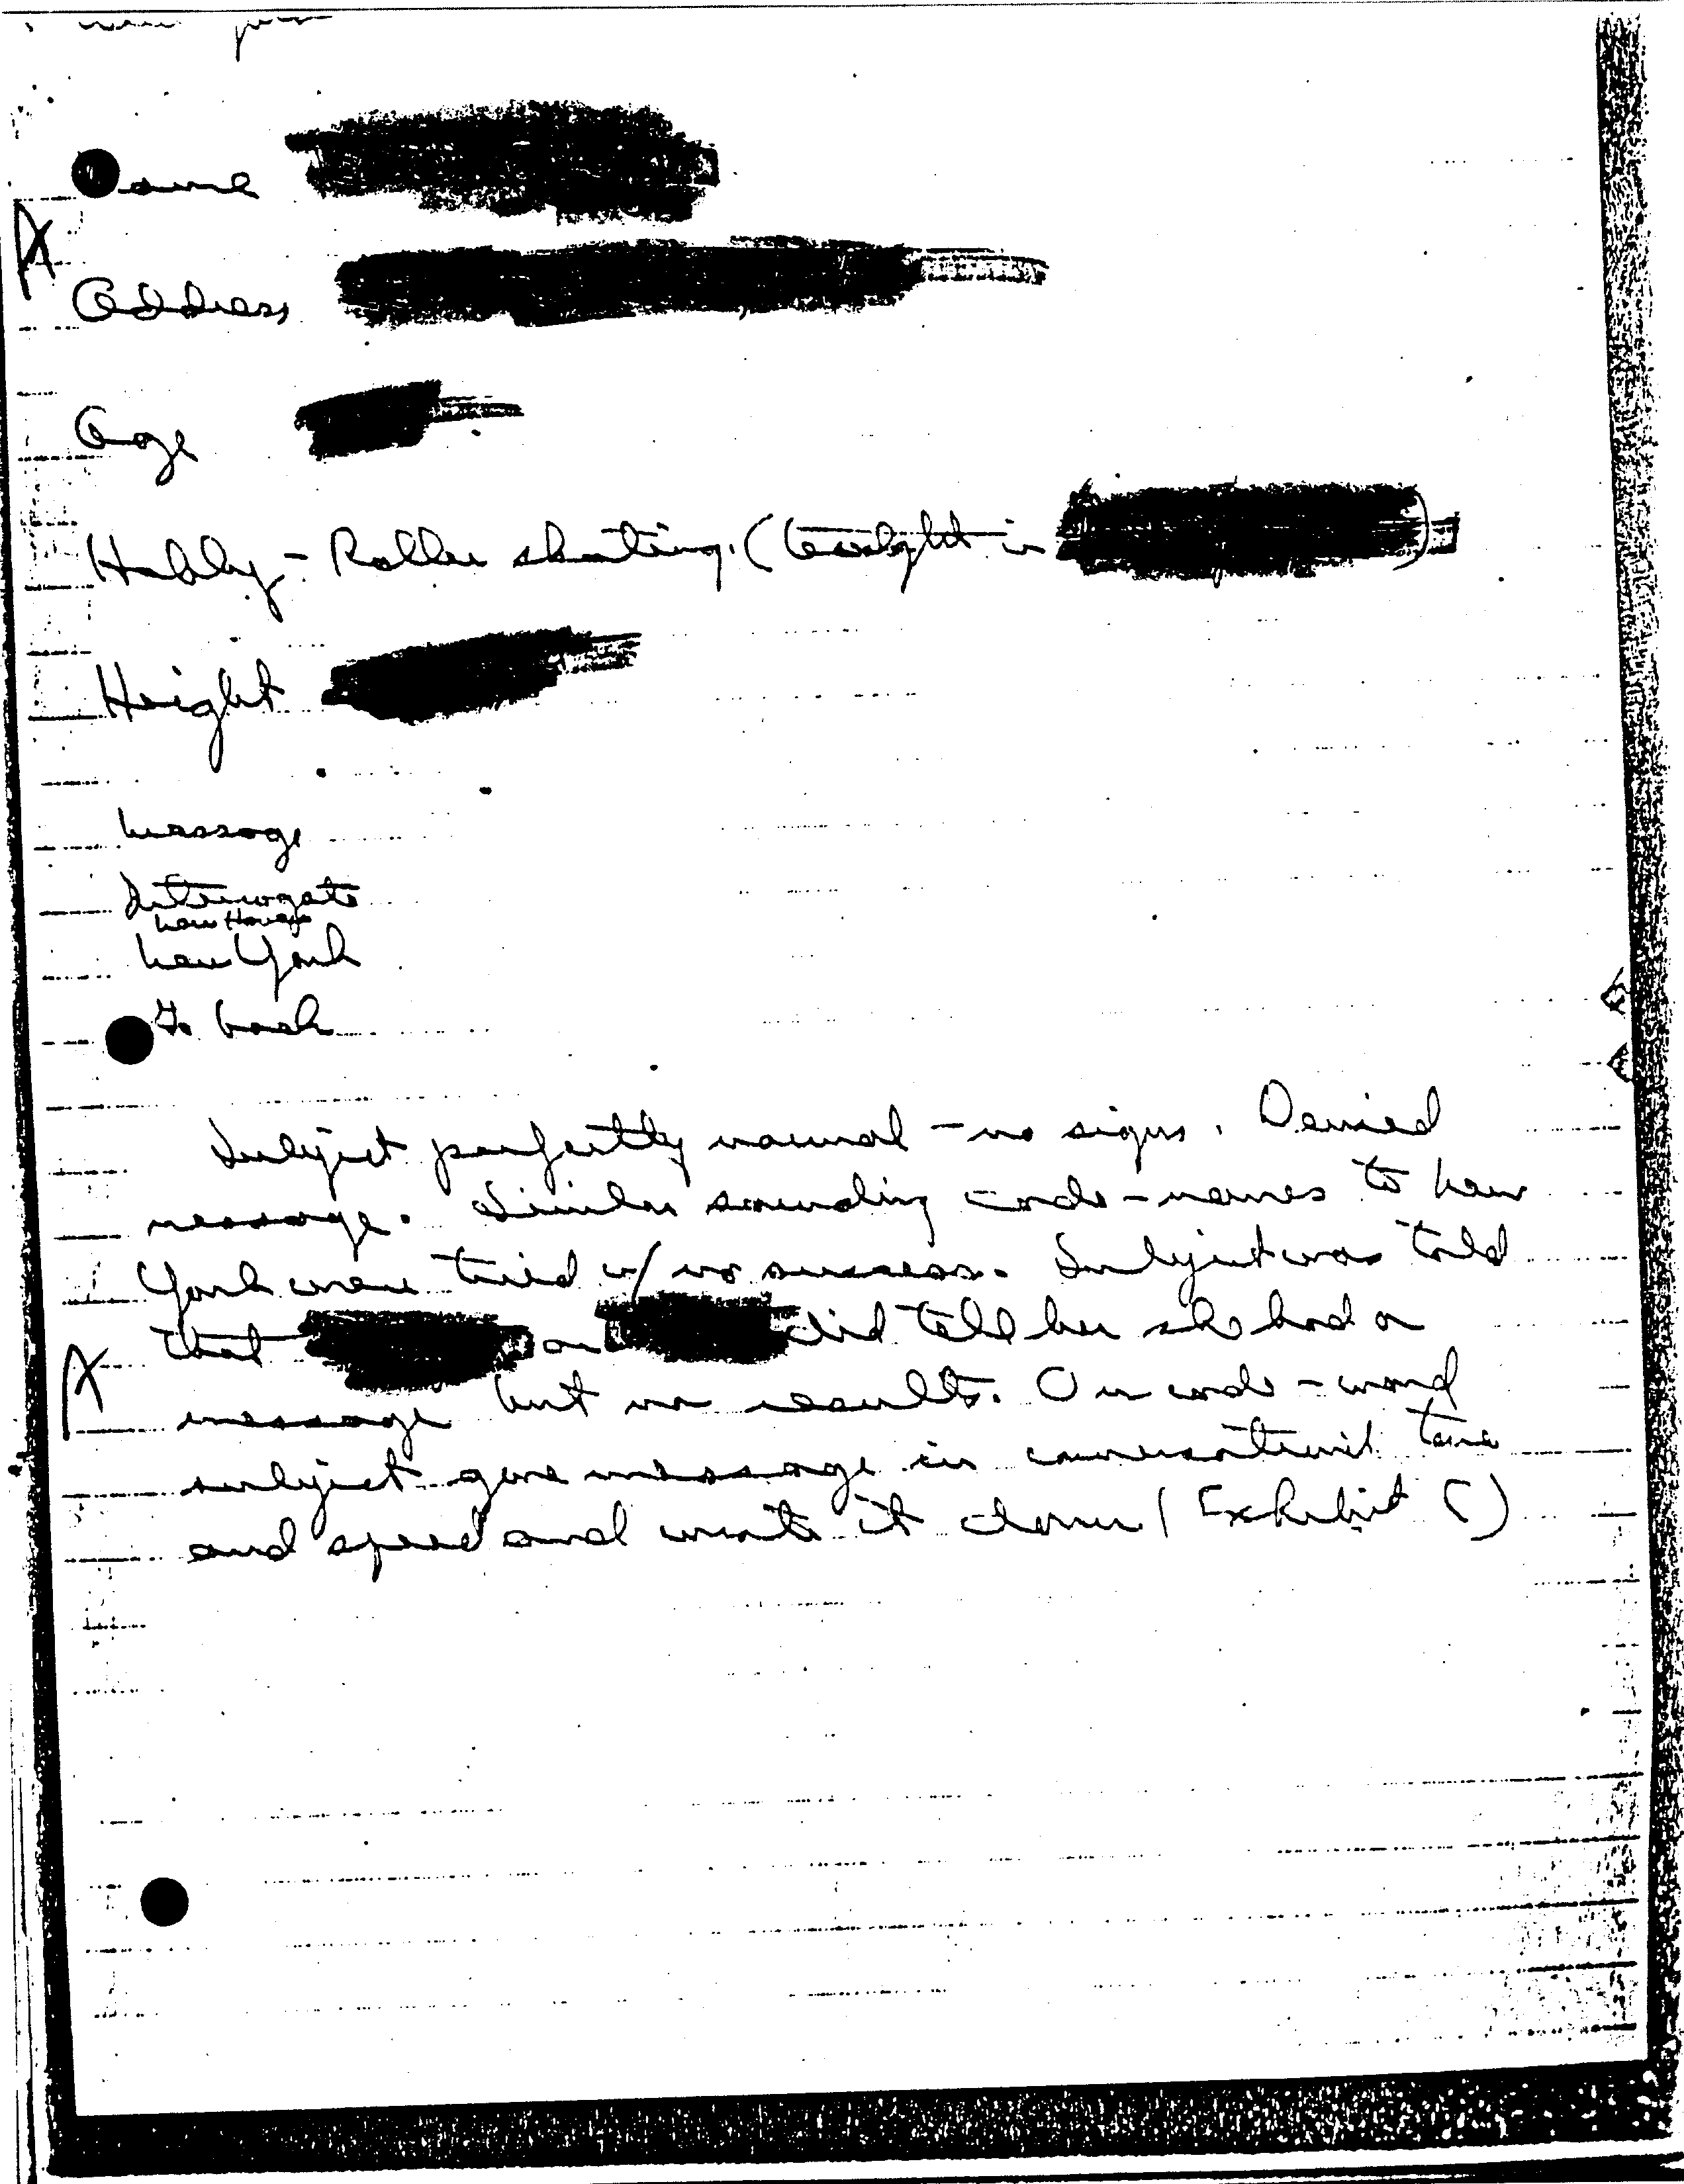 Name
A
Address
Age
Hobby - Roller skating. (taught in )
Height
message
Interrogate
New Haven
New York
Go back
Subject perfectly normal - no signs. Denied
message. Similar sounding code-names to New
York were tried w/ no success. Subject was told
that or did tell her she had a
A
message but no results. On code-word
subject gave message in conversational tone
and speed and wrote it down (Exhibit C)